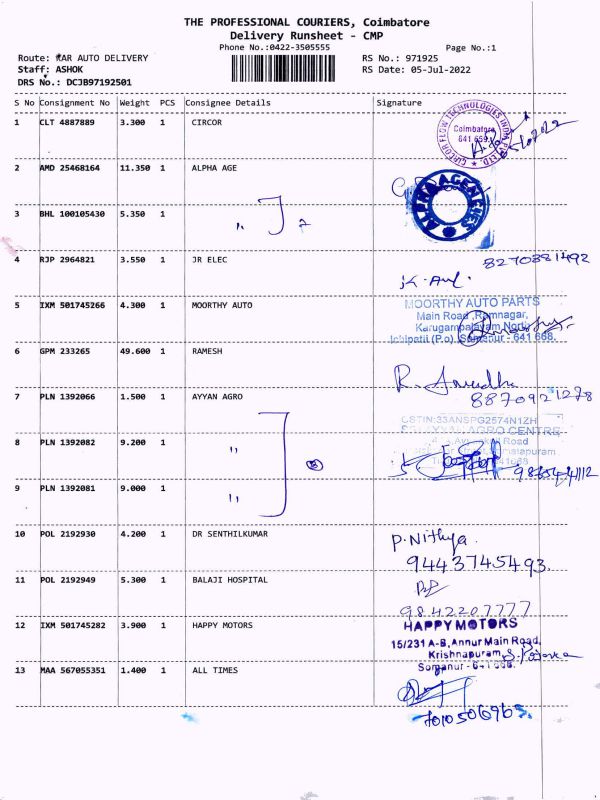 THE PROFESSIONAL COURIERS, Coimbatore
Delivery Runsheet - CMP
Phone No.:0422-3505555 Page No.:1
Route: KAR AUTO DELIVERY RS No.: 971925
Staff: ASHOK RS Date: 05-Jul-2022
DRS No.: DCJB97192501
S No Consignment No Weight PCS Consignee Details Signature
1 CLT 4887889 3.300 1 CIRCOR
CIRCOR FLOW TECHNOLOGIES INDIA PVT. LTD.
Coimbatore
641 659
2 AMD 25468164 11.350 1 ALPHA AGE
ALPHA AGENCIES
3 BHL 100105430 5.350 1 ,,
4 RJP 2964821 3.550 1 JR ELEC 8270381492
5 IXM 501745266 4.300 1 MOORTHY AUTO
MOORTHY AUTO PARTS
Main Road, Ramnagar,
Karugampalayam North
Ichipatti (P.o), Somanur - 641 668.
6 GPM 233265 49.600 1 RAMESH
R. Anuradha
8870921278
7 PLN 1392066 1.500 1 AYYAN AGRO
GSTIN:33ANSPG2574N1ZH
AGRO CENTRE
Road
8 PLN 1392082 9.200 1 ,, 8
9 PLN 1392081 9.000 1 ,,
10 POL 2192930 4.200 1 DR SENTHILKUMAR P. Nithya.
9443745493.
11 POL 2192949 5.300 1 BALAJI HOSPITAL
9842207777
12 IXM 501745282 3.900 1 HAPPY MOTORS
HAPPY MOTORS
15/231 A-B, Annur Main Road,
Krishnapuram,
Somanur - 641 668.
13 MAA 567055351 1.400 1 ALL TIMES